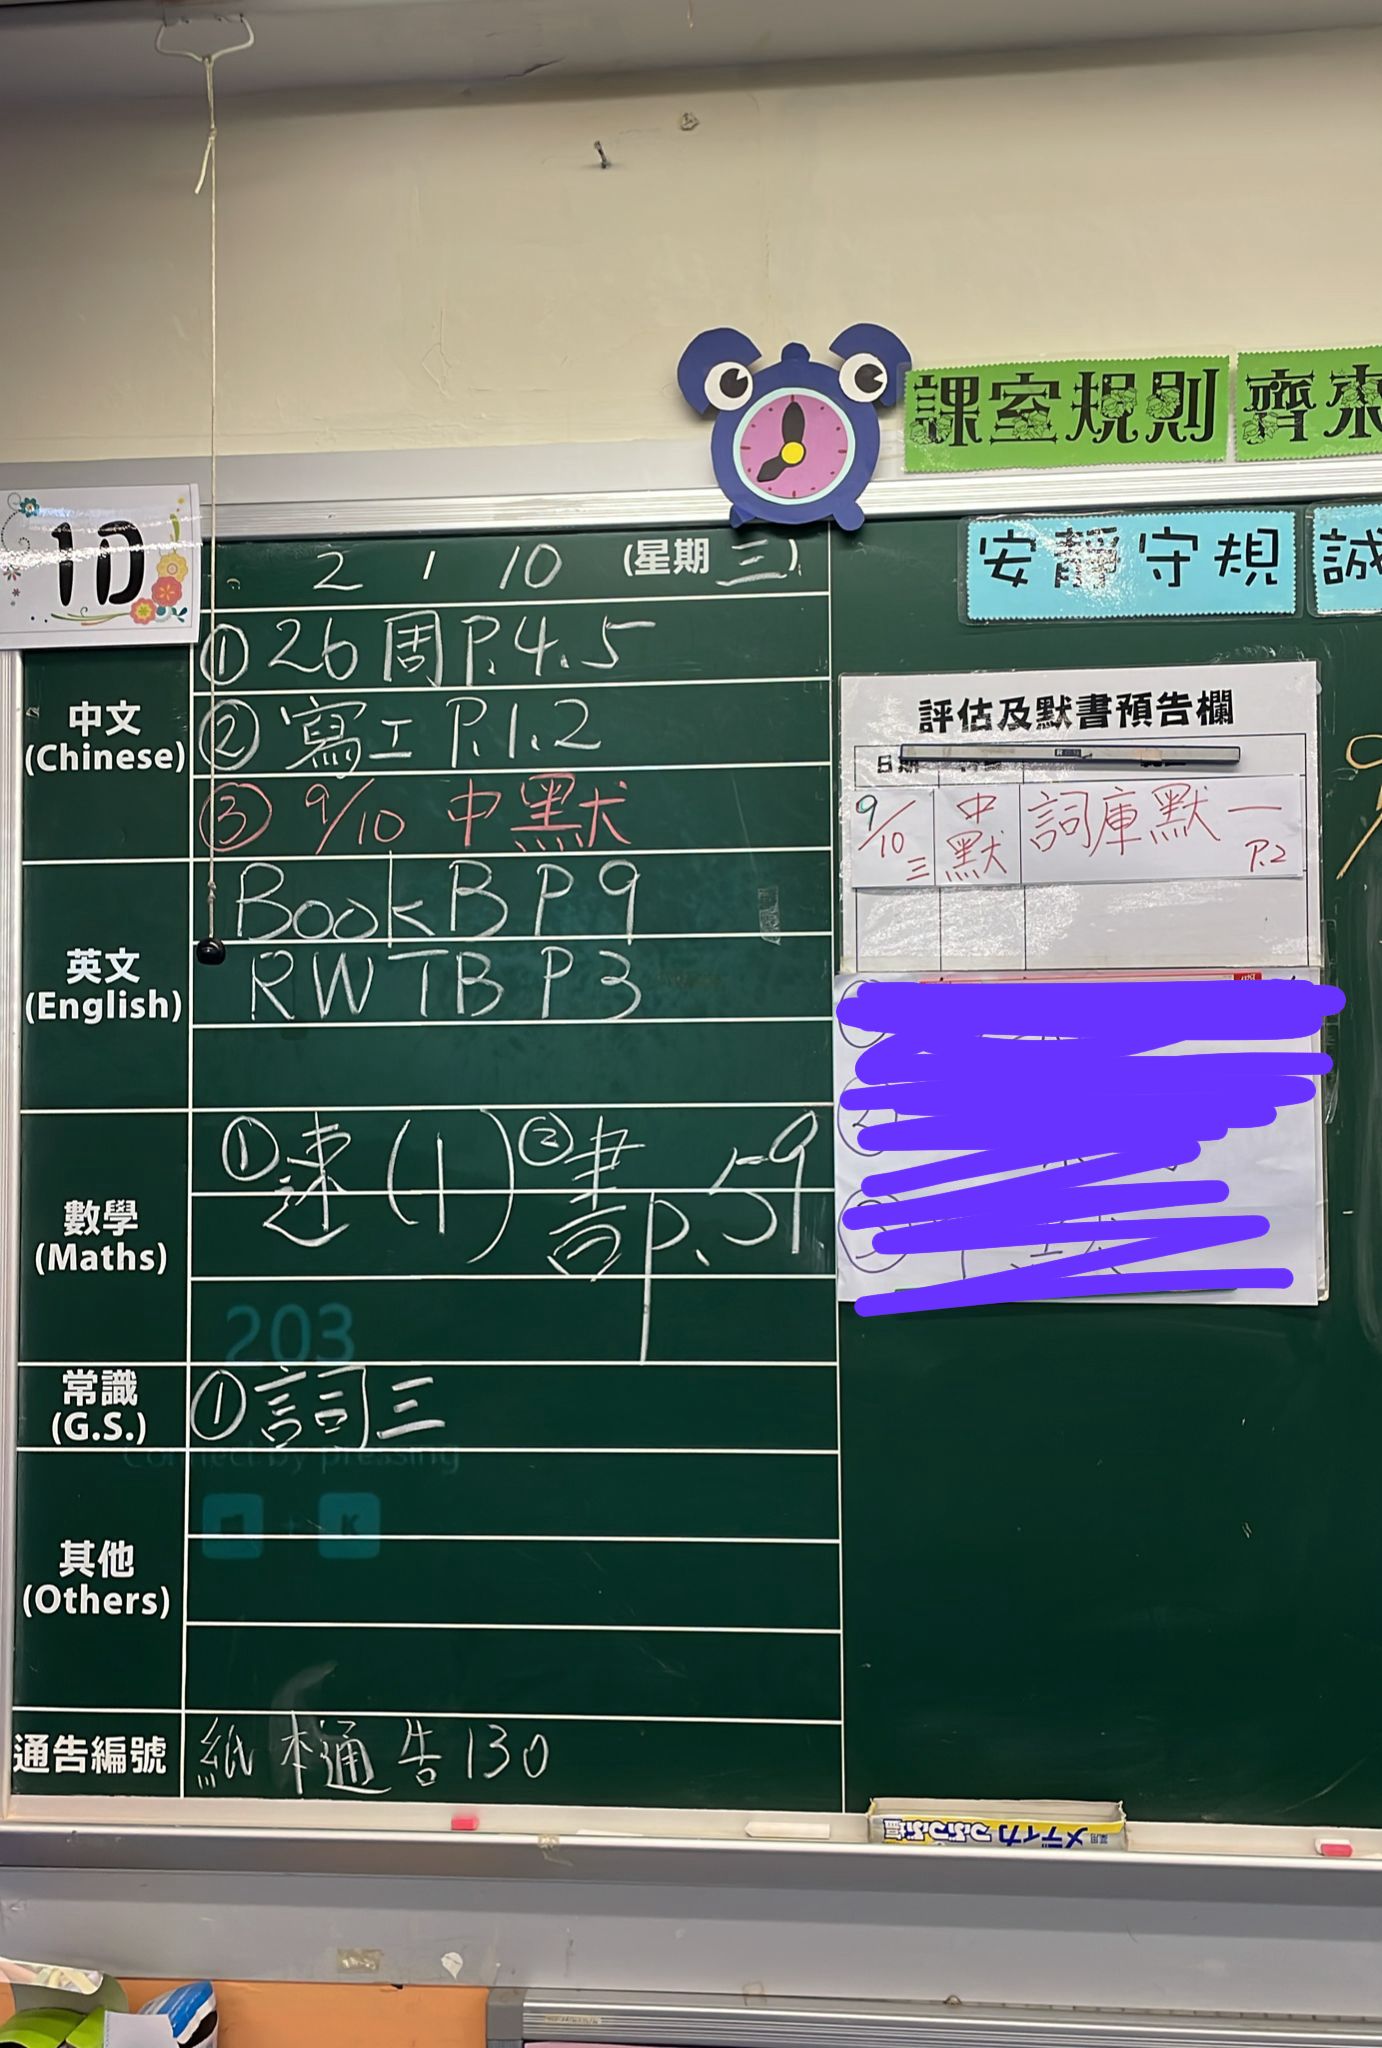 課室規則 齊來
1D
2 / 10 (星期三)
安靜守規 誠
中文
(Chinese)
① 26周 P.4.5
② 寫工 P.1.2
③ 9/10 中默
評估及默書預告欄
日期
9/10 三 中默 詞庫默一 P.2
英文
(English)
Book B P 9
RW TB P 3
數學
(Maths)
① 速(1) ② 書 P.59
203
常識
(G.S.)
① 詞三
Connect by pressing
+ K
其他
(Others)
通告編號
紙本通告130
メディカつぶつぶ塩